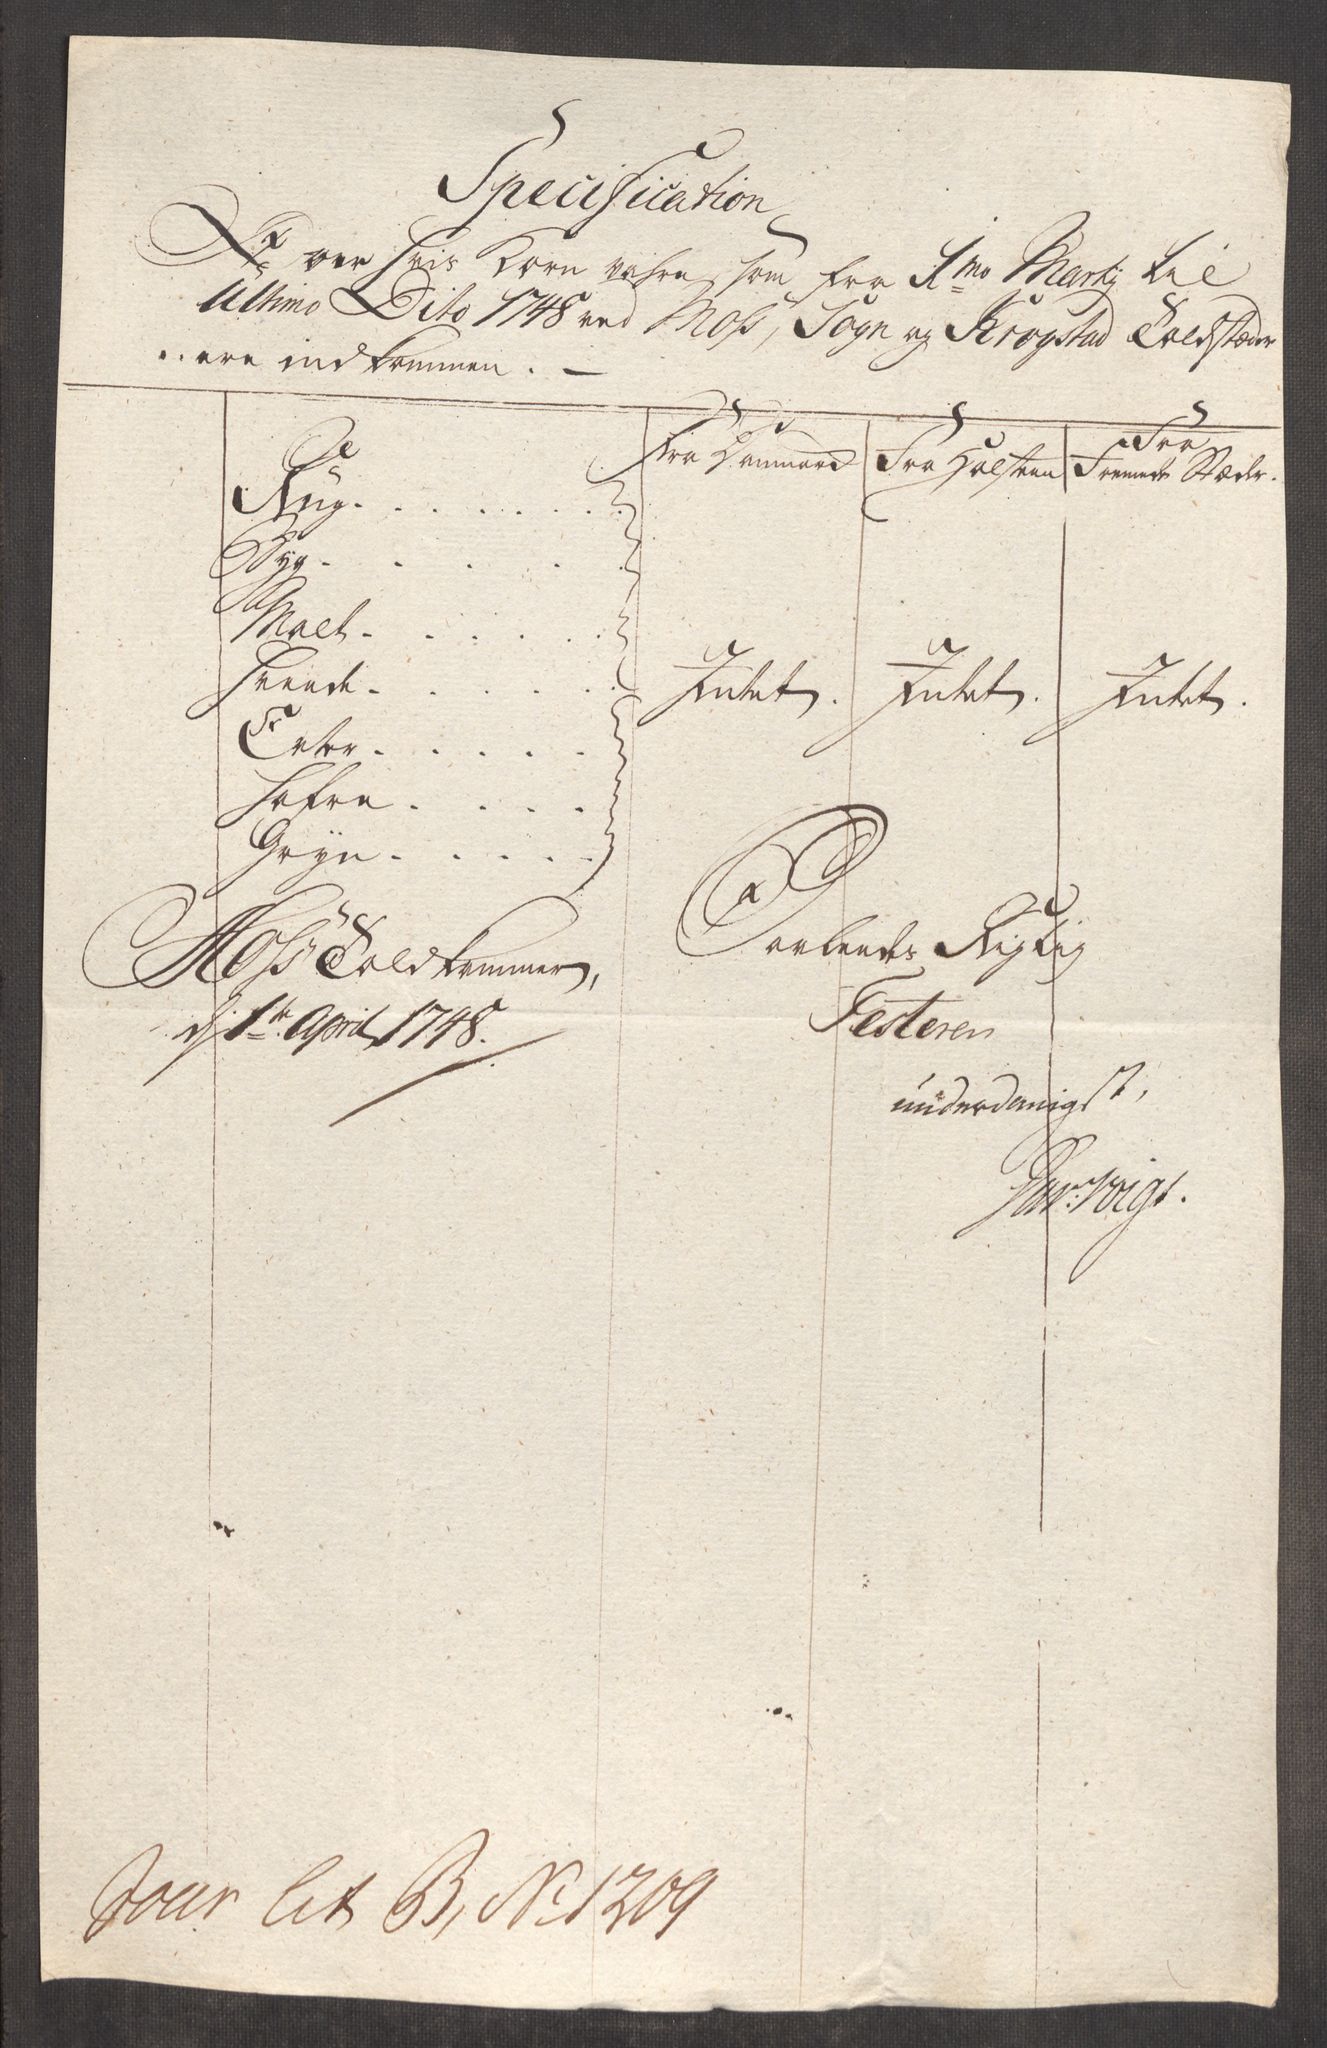 Specification
over hvis Korn vahre, som fra 1mo Marty til
Ultimo Dito 1748 ved Moss, Sogn og Krogstad Toldstæder
ere indkommen.
Fra Danmarck Fra Holsteen Fra Fremede Stæder.
Rug
Byg
Malt
Hvede
Erter
Hafre
Gryn
Intet. Intet. Intet.
Moss Toldkammer,
d. 1te April 1748.
Saaledes Rigtig
Testeren
underdanigst,
Voigt.
Jour lit B, No 1209